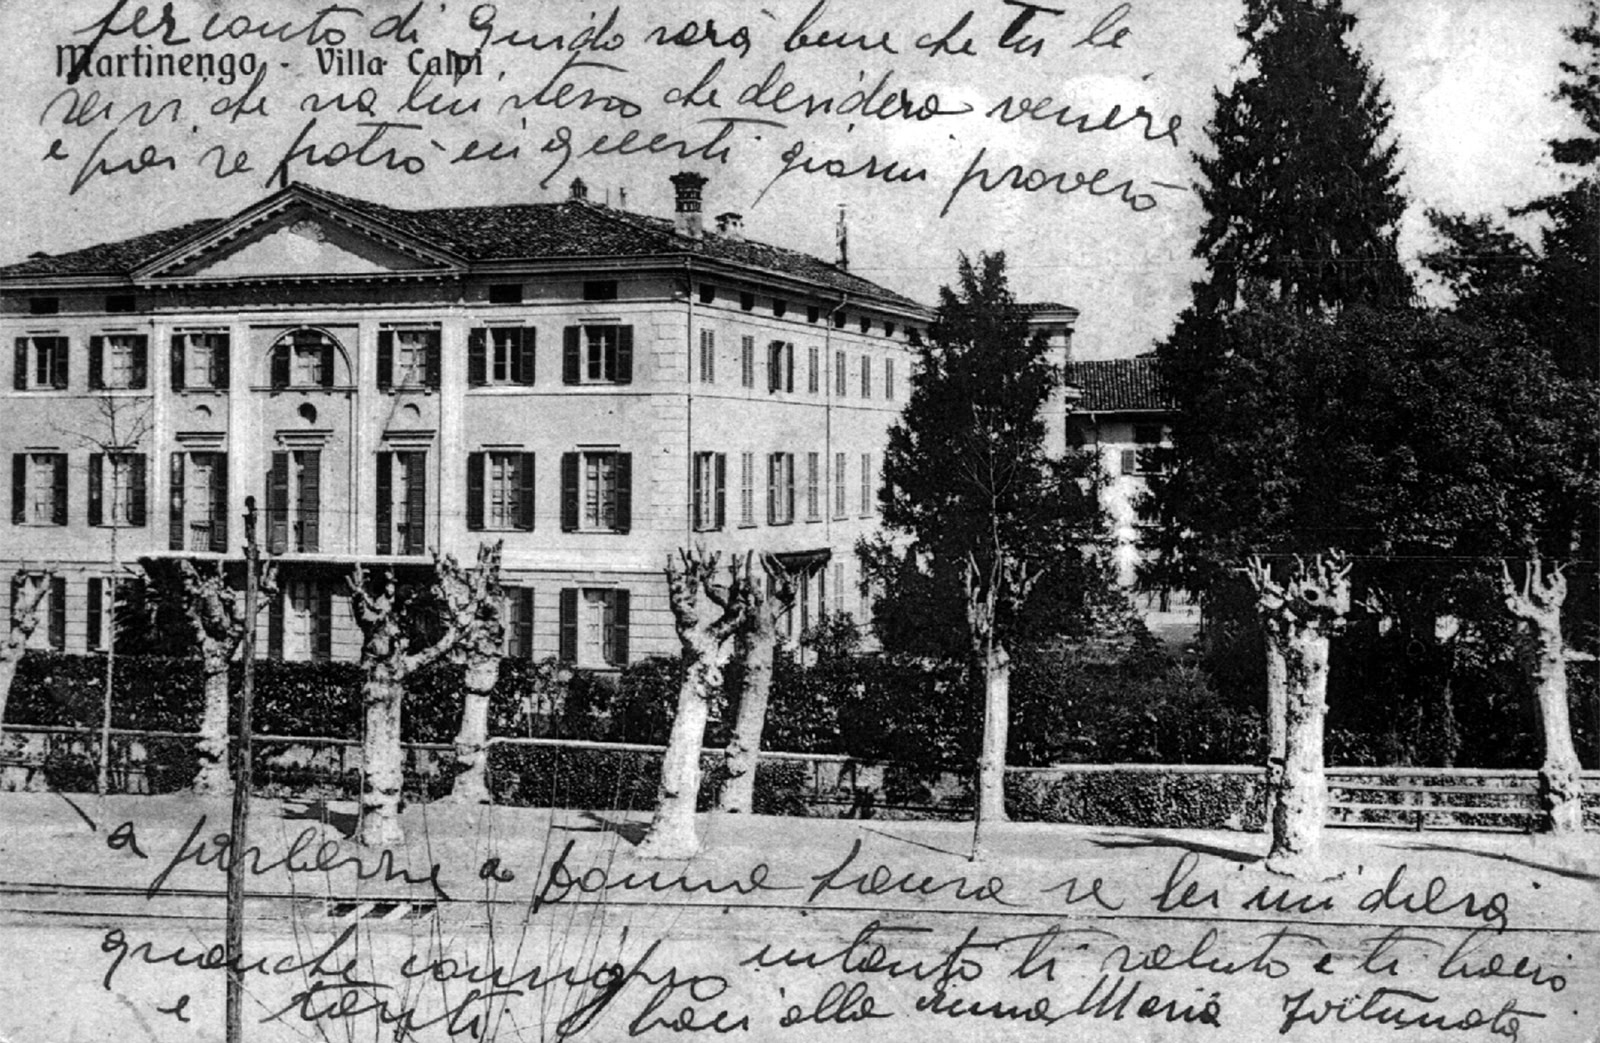 per conto di Guido sarà bene che tu le
Martinengo - Villa Calvi
scrivi che sia lui stesso che desidera venire
e poi se potrò in questi giorni proverò
a parlarne a donna Laura se lei mi darà
qualche consiglio intanto ti saluto e ti bacio
e tanti baci alla Maria Fortunata